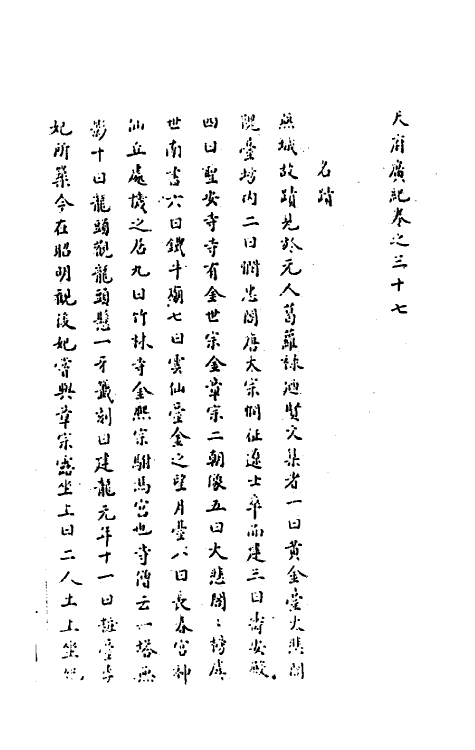 天府廣紀卷之三十七
名蹟
燕城故蹟見於元人葛邏祿迺賢文集者一曰黃金臺大悲閣
隗臺坊內二曰憫忠閣唐太宗憫征遼士卒而建三曰壽安殿
四曰聖安寺寺有金世宗金章宗二朝像五曰大悲閣：榜虞
世南書六曰鐵牛廟七曰雲仙臺金之望月臺八曰長春宮神
仙丘處機之居九曰竹林寺金熙宗駙馬宮也寺僧云一塔無
影十曰龍頭觀龍頭懸一牙籤刻曰建龍元年十一曰粧臺李
妃所築今在昭明觀後妃嘗與章宗露坐上曰二人土上坐妃